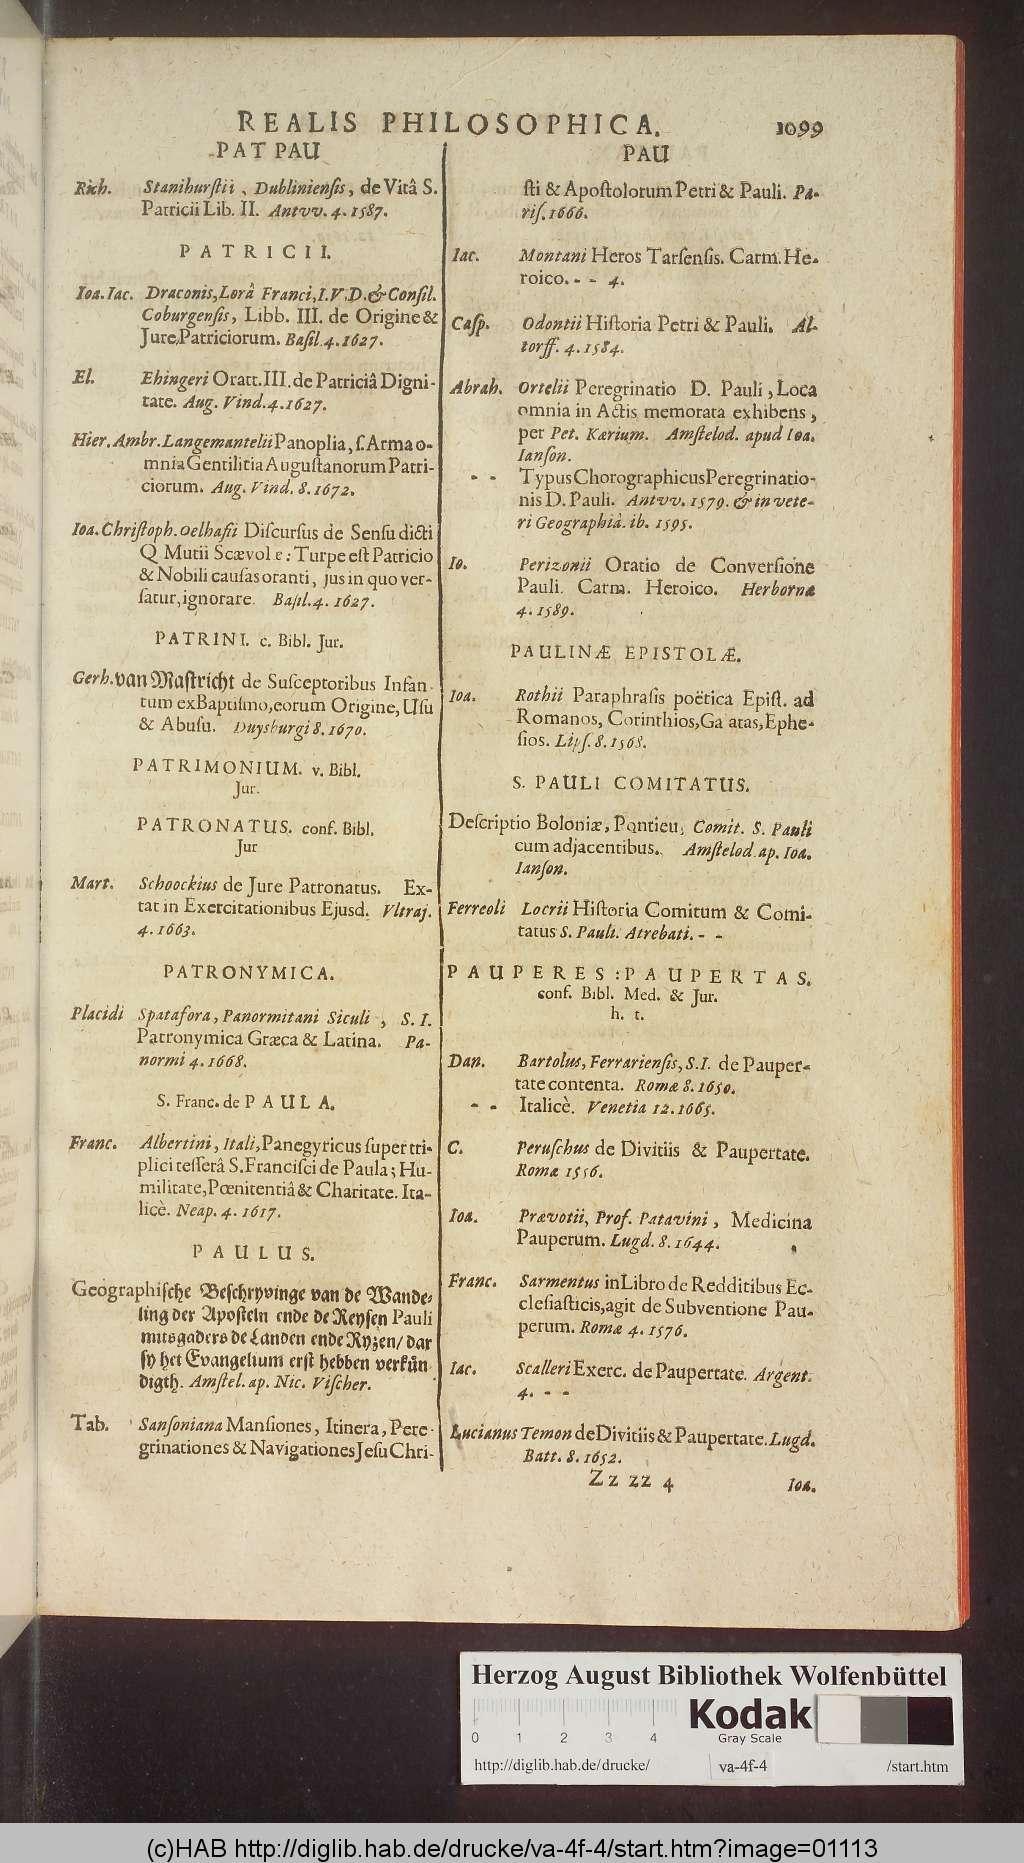 REALIS PHILOSOPHICA. 1099
PAT PAU
Rich. Stanihurſtii, Dublinienſis, de Vitâ S.
Patricii Lib. II. Antvv. 4. 1587.
PATRICII.
Ioa. Iac. Draconis, Lorâ Franci, I.V.D. & Conſil.
Coburgenſis, Libb. III. de Origine &
Jure, Patriciorum. Baſil. 4. 1627.
El. Ehingeri Oratt. III. de Patriciâ Digni-
tate. Aug. Vind. 4. 1627.
Hier. Ambr. Langemantelii Panoplia, ſ. Arma o-
mnia Gentilitia Auguſtanorum Patri-
ciorum. Aug. Vind. 8. 1672.
Ioa. Chriſtoph. Oelhafii Diſcurſus de Senſu dicti
Q Mutii Scævolæ: Turpe eſt Patricio
& Nobili cauſas oranti, jus in quo ver-
ſatur, ignorare. Baſil. 4. 1627.
PATRINI. c. Bibl. Jur.
Gerh. van Maſtricht de Suſceptoribus Infan-
tum ex Baptiſmo, eorum Origine, Uſu
& Abuſu. Duysburgi 8. 1670.
PATRIMONIUM. v. Bibl.
Jur.
PATRONATUS. conf. Bibl.
Jur
Mart. Schoockius de Jure Patronatus. Ex-
tat in Exercitationibus Ejusd. Vltraj.
4. 1663.
PATRONYMICA.
Placidi Spatafora, Panormitani Siculi, S. I.
Patronymica Græca & Latina. Pa-
normi 4. 1668.
S. Franc. de PAULA.
Franc. Albertini, Itali, Panegyricus ſuper tri-
plici teſſerâ S. Franciſci de Paula; Hu-
militate, Pœnitentiâ & Charitate. Ita-
licè. Neap. 4. 1617.
PAULUS.
Geographiſche Beſchryvinge van de Wande-
ling der Apoſteln ende de Reyſen Pauli
mitsgaders de Landen ende Ryzen/ dar
ſy het Evangelium erſt hebben verkün
digth. Amſtel. ap. Nic. Viſcher.
Tab. Sanſoniana Manſiones, Itinera, Pere-
grinationes & Navigationes Jeſu Chri-
PAU
ſti & Apoſtolorum Petri & Pauli. Pa-
riſ. 1666.
Iac. Montani Heros Tarſenſis. Carm. He-
roico. - - 4.
Caſp. Odontii Hiſtoria Petri & Pauli. Al-
torff. 4. 1584.
Abrah. Ortelii Peregrinatio D. Pauli, Loca
omnia in Actis memorata exhibens,
per Pet. Kærium. Amſtelod. apud Ioa.
Ianſon.
- - Typus Chorographicus Peregrinatio-
nis D. Pauli. Antvv. 1579. & in vete-
ri Geographiâ. ib. 1595.
Io. Perizonii Oratio de Converſione
Pauli. Carm. Heroico. Herbornæ
4. 1589.
PAULINÆ EPISTOLÆ.
Ioa. Rothii Paraphraſis poëtica Epiſt. ad
Romanos, Corinthios, Ga atas, Ephe-
ſios. Lipſ. 8. 1568.
S. PAULI COMITATUS.
Deſcriptio Boloniæ, Pontieu, Comit. S. Pauli
cum adjacentibus. Amſtelod. ap. Ioa.
Ianſon.
Ferreoli Locrii Hiſtoria Comitum & Comi-
tatus S. Pauli. Atrebati. - -
PAUPERES: PAUPERTAS.
conf. Bibl. Med. & Jur.
h. t.
Dan. Bartolus, Ferrarienſis, S.I. de Pauper-
tate contenta. Romæ 8. 1650.
- - Italicè. Venetia 12. 1665.
C. Peruſchus de Divitiis & Paupertate.
Romæ 1556.
Ioa. Prævotii, Prof. Patavini, Medicina
Pauperum. Lugd. 8. 1644.
Franc. Sarmentus in Libro de Redditibus Ec-
cleſiaſticis, agit de Subventione Pau-
perum. Romæ 4. 1576.
Iac. Scalleri Exerc. de Paupertate. Argent.
4. - -
Lucianus Temon de Divitiis & Paupertate. Lugd.
Batt. 8. 1652.
Zz zz 4 Ioa.
Herzog August Bibliothek Wolfenbüttel
0 1 2 3 4
Kodak
Gray Scale
http://diglib.hab.de/drucke/ va-4f-4 /start.htm
(c)HAB http://diglib.hab.de/drucke/va-4f-4/start.htm?image=01113